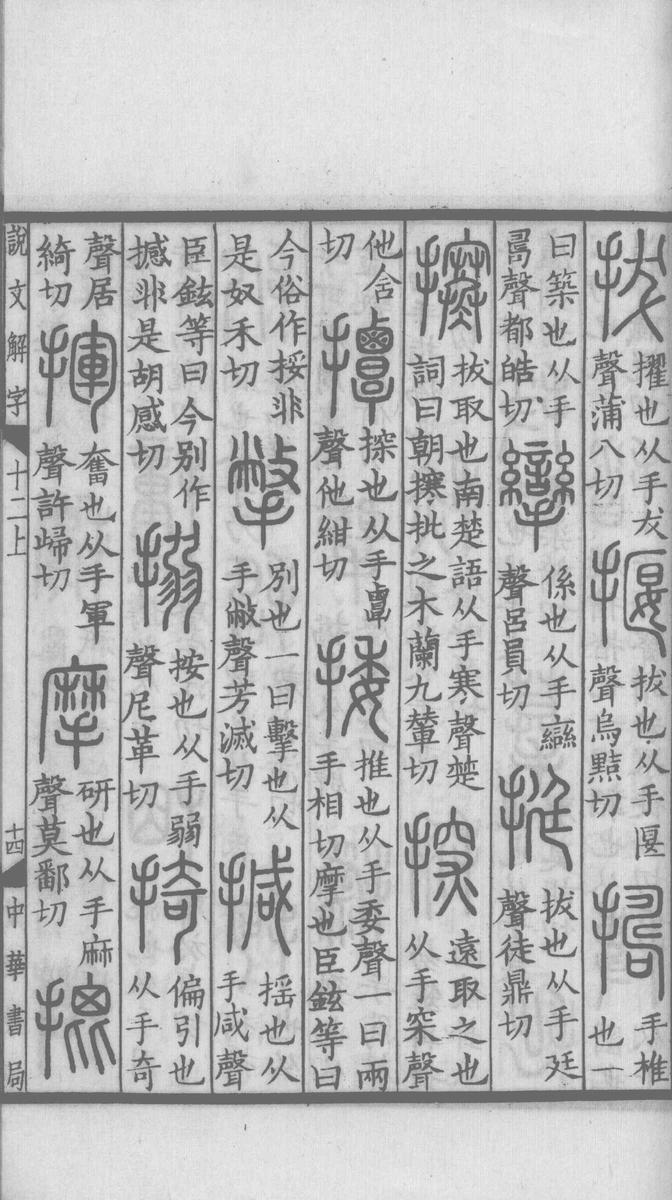 拔擢也从手犮聲蒲八切揠拔也从手匽聲烏黠切擣手椎也一
曰築也从手𠷎聲都皓切攣係也从手䜌聲呂員切挺拔也从手廷聲徒鼎切
攓拔取也南楚語从手寒聲楚詞曰朝攓批之木蘭九輦切探遠取之也从手罙聲
他含切撢探也从手覃聲他紺切捼推也从手委聲一曰兩手相切摩也臣鉉等曰
今俗作挼非是奴禾切撆別也一曰擊也从手敝聲芳滅切揻搖也从手咸聲
臣鉉等曰今別作撼非是胡感切搦按也从手弱聲尼革切掎偏引也从手奇
聲居綺切揮奮也从手軍聲許歸切摩研也从手麻聲莫鄱切
說文解字 十二上 十四 中華書局